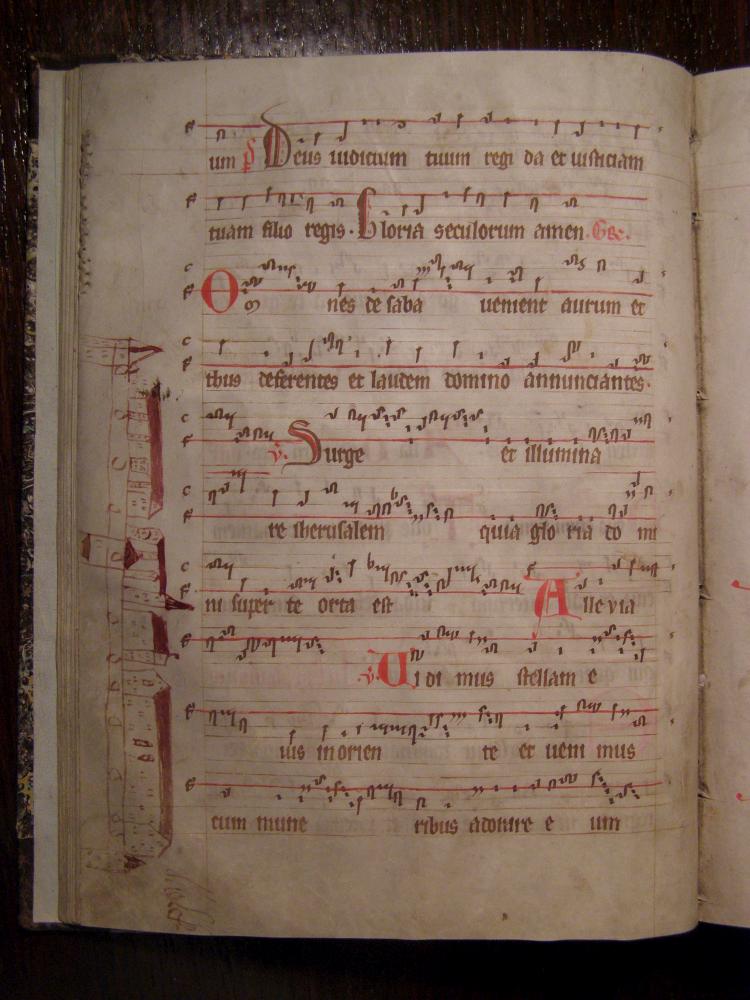 um p̄s Deus iudicium tuum regi da et iusticiam
tuam filio regis. Gloria seculorum amen.
Om nes de saba uenient aurum et
thus deferentes et laudem domino annunciantes.
v. Surge et illumina
re iherusalem quia glo ria do mi
ni super te orta est Alle via
v. Ui di mus stellam e
ius in orien te et ueni mus
cum mune ribus adorare e um